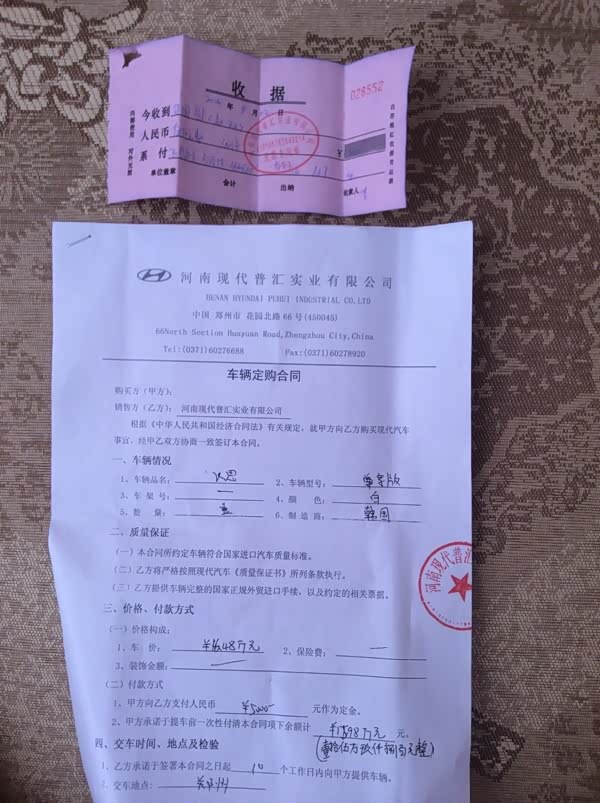 收 据
028552
年 月 日
今收到
人民币
系 付
¥
单位盖章 会计 出纳 经款人
内部使用
对外无效
河南现代普汇实业有限公司
HENAN HYUNDAI PUHUI INDUSTRIAL CO.LTD
中国 郑州市 花园北路 66 号(450045)
66North Section Huayuan Road,Zhengzhou City,China
Tel:(0371)60276688 Fax:(0371)60278920
车辆定购合同
购买方（甲方）：
销售方（乙方）： 河南现代普汇实业有限公司
根据《中华人民共和国经济合同法》有关规定，就甲方向乙方购买现代汽车
事宜，经甲乙双方协商一致签订本合同。
一、车辆情况
1、车辆品名： 2、车辆型号： 尊享版
3、车 架 号： 一 4、颜 色： 白
5、数 量： 壹 6、制 造 商： 韩国
二、质量保证
（一）本合同所约定车辆符合国家进口汽车质量标准。
（二）乙方将严格按照现代汽车《质量保证书》所列条款执行。
（三）乙方提供车辆完整的国家正规外贸进口手续，以及约定的相关票据。
河南现代普汇
三、价格、付款方式
（一）价格构成：
1、车 价： 2、保险费： 一
3、装饰金额： 一
（二）付款方式
1、甲方向乙方支付人民币 ¥5000 元作为定金。
2、甲方承诺于提车前一次性付清本合同项下余额计 元。
四、交车时间、地点及检验
1、乙方承诺于签署本合同之日起 10 个工作日内向甲方提供车辆。
2、交车地点： 郑州